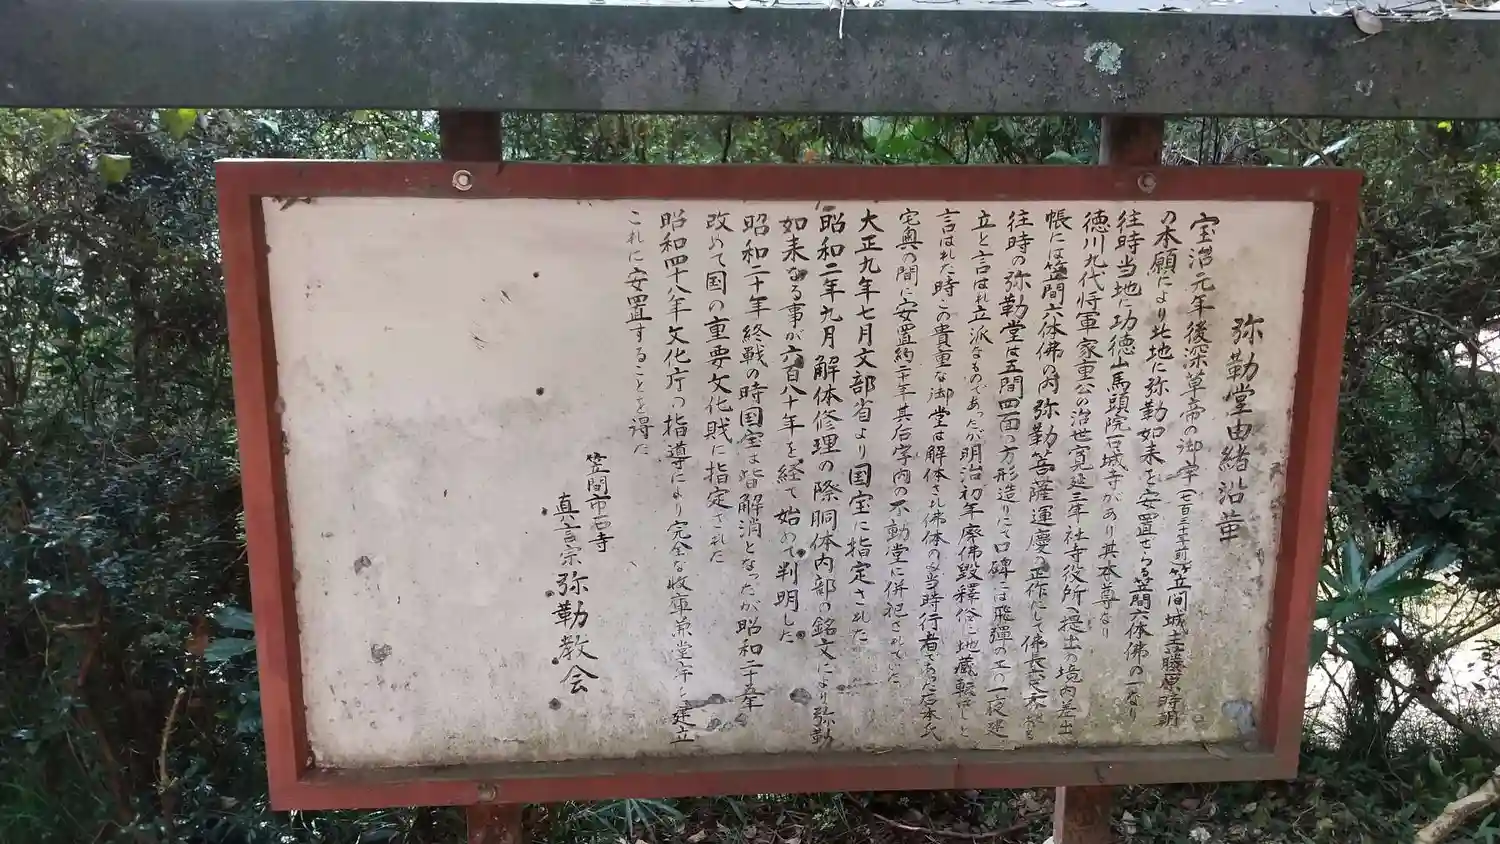 弥勒堂由緒沿革
宝治元年後深草帝の御宇(七百三十年前)笠間城主藤原時朝
の本願により此地に弥勒如来を安置せらる笠間六体佛の一なり
往時当地に功徳山馬頭院石城寺があり其本尊なり
徳川九代将軍家重公の治世寛延三年社寺役所へ提出の境内差出
帳には笠間六体佛の内弥勒菩薩運慶の正作にして佛長六尺
往時の弥勒堂は五間四面の方形造りにて口碑には飛弾の工の一夜建
立と言はれ立派なものであったが明治初年廃佛毀釋俗に地蔵転がしと
言はれた時この貴重な御堂は解体され佛体のみ当時行者であった石本氏
宅奥の間に安置約二十年其后字内の不動堂に併祀されていた
大正九年七月文部省より国宝に指定された
昭和二年九月解体修理の際胴体内部の銘文により弥勒
如来なる事が六百八十年を経て始めて判明した
昭和二十年終戦の時国宝は皆解消となったが昭和二十五年
改めて国の重要文化財に指定された
昭和四十八年文化庁の指導により完全な収庫兼堂宇を建立
これに安置することを得た
笠間市石寺
真言宗弥勒教会